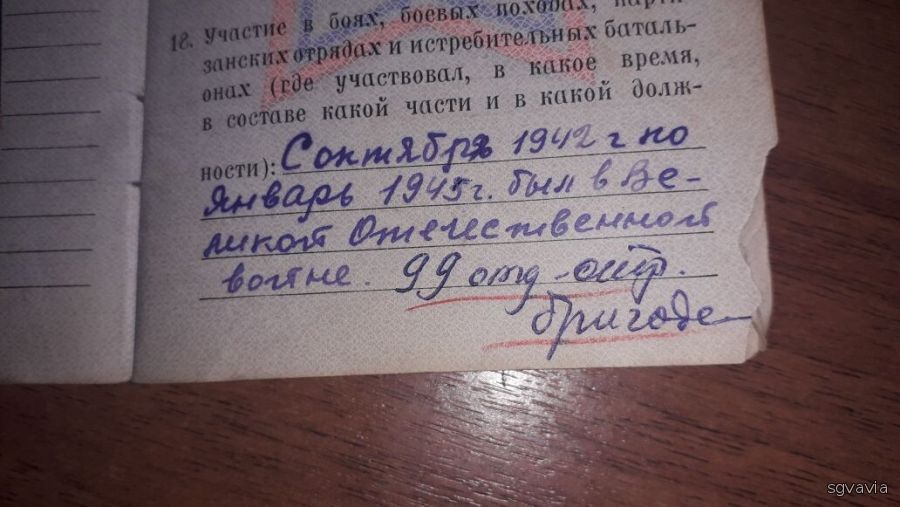 18. Участие в боях, боевых походах, парти-
занских отрядах и истребительных баталь-
онах (где участвовал, в какое время,
в составе какой части и в какой долж-
ности): Сонтября 1942 г по
Январь 1945 г. был в Ве-
ликой Отечественной
войне. 99 отд-
бригаде
sgvavia